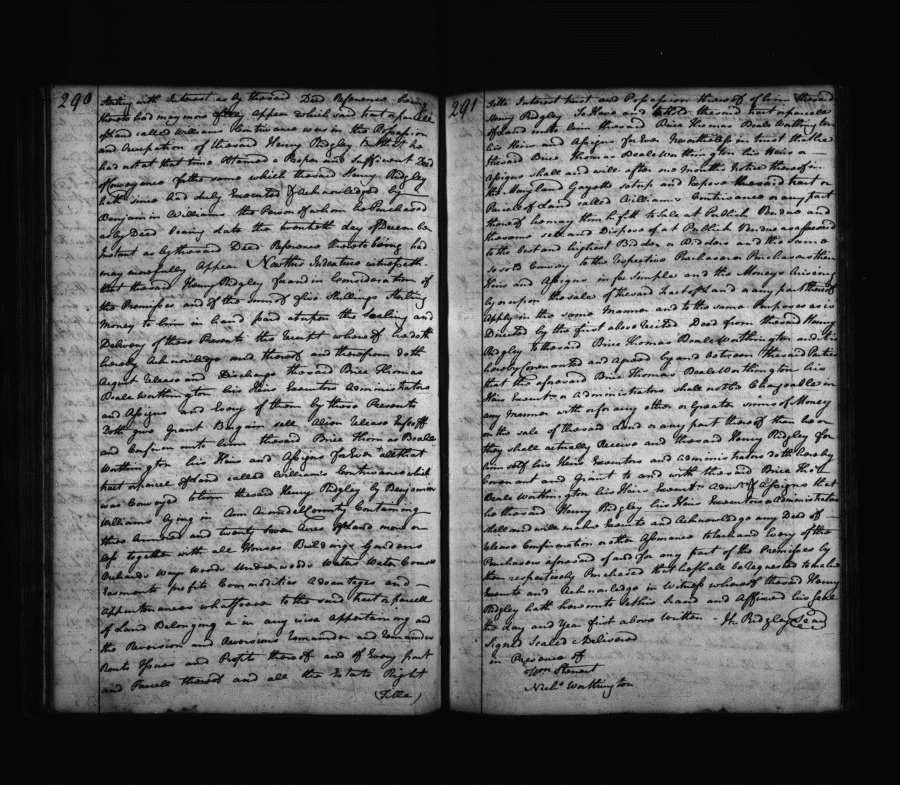 290
Sterling with Interest as by the said Deed Reference being
thereto had may more fully Appear which said tract or parcell
of Land called Williams Contrivance was in the Possession
and Occupation of the said Henry Ridgley but that he
had not at that time Obtained a Proper and Sufficient Deed
of Conveyance for the same which the said Henry Ridgley
hath since had duly Executed & Acknowledged by
Benjamin Williams the Person of whom he Purchased
as by Deed bearing date the twentieth day of December
Instant as by the said Deed Reference thereto being had
may more fully Appear Now this Indenture witnesseth
that the said Henry Ridgley for and in Consideration of
the Premisses and of the Sum of five Shillings Sterling
Money to him in hand paid at & upon the Sealing and
Delivery of these Presents the Receipt whereof he doth
hereby Acknowledge and thereof and therefrom doth
Acquit Release and Discharge the said Brice Thomas
Beale Worthington his Heirs Executors Administrators
and Assigns and Every of them by these Presents
Doth give Grant Bargain sell Alien Release Enfeoff
and Confirm unto him the said Brice Thomas Beale
Worthington his Heirs and Assigns for Ever all that
tract or parcel of Land called Williams Contrivance which
was Conveyed to him the said Henry Ridgley by Benjamin
Williams lying in Ann Arundel County Containing
three hundred and twenty seven Acres of Land more or
less together with all Houses Buildings Gardens
Orchards Ways Woods Underwoods Water Water Courses
Easments profits Commodities Advantages and
Appurtenances whatsoever to the said tract or parcell
of Land Belonging or in any wise Appertaining and
the Reversion and Reversions Remainder and Remainders
Rents Issues and Profits thereof and of Every part
and Parcell thereof and all the Estate Right
(Title)
291
Title Interest trust and Possession thereof of him the said
Henry Ridgley To Have and to Hold the said tract or parcell
of Land unto him the said Brice Thomas Beale Worthington
his Heirs and Assigns for Ever Nevertheless in trust that he
the said Brice Thomas Beale Worthington his Heirs or
Assigns shall and will after one months Notice thereof in
the Maryland Gazette set up and Expose the said tract or
Parcle of Land called Williams Contrivance or any part
thereof he may think fit to Sale at Publick Vendue and
the same sell and Dispose of at Publick Vendue as aforesaid
to the best and highest Bidder or Bidders and the Same
so sold Convey to the Respective Purchaser or Purchasers their
Heirs and Assigns in fee Simple and the Moneys Arising
by or upon the sale of the said Tract of Land or any part thereof
Apply in the same Manner and to the same Purposes as is
Directed by the first above Recited Deed from the said Henry
Ridgley to the said Brice Thomas Beale Worthington and it is
hereby Covenanted and Agreed by and between the said Parties
that the aforesaid Brice Thomas Beale Worthington his
Heirs Executors or Administrators shall not be Chargeable in
any Manner with or for any other or Greater sums of Money
on the sale of the said Land or any part thereof than he or
they shall actually Receive and the said Henry Ridgley for
himself his Heirs Executors and Administrators doth hereby
Covenant and Grant to and with the said Brice Thos
Beale Worthington his Heirs Execrs Admrs & Assigns that
he the said Henry Ridgley his Heirs Executors or Administrators
shall and will make Execute and Acknowledge any Deed of
Release Confirmation or other Assurance to each and Every of the
Purchasers aforesaid of and for any part of the Premisses by
them respectively Purchased that he shall be Requested to make
Execute and Acknowledge in Witness whereof the said Henry
Ridgley hath hereunto set his hand and Affixed his Seal
the day and Year first above Written - H Ridgley Seal
Signed Sealed & Delivered
in Presence of
Wm Steuart
Nichs Worthington